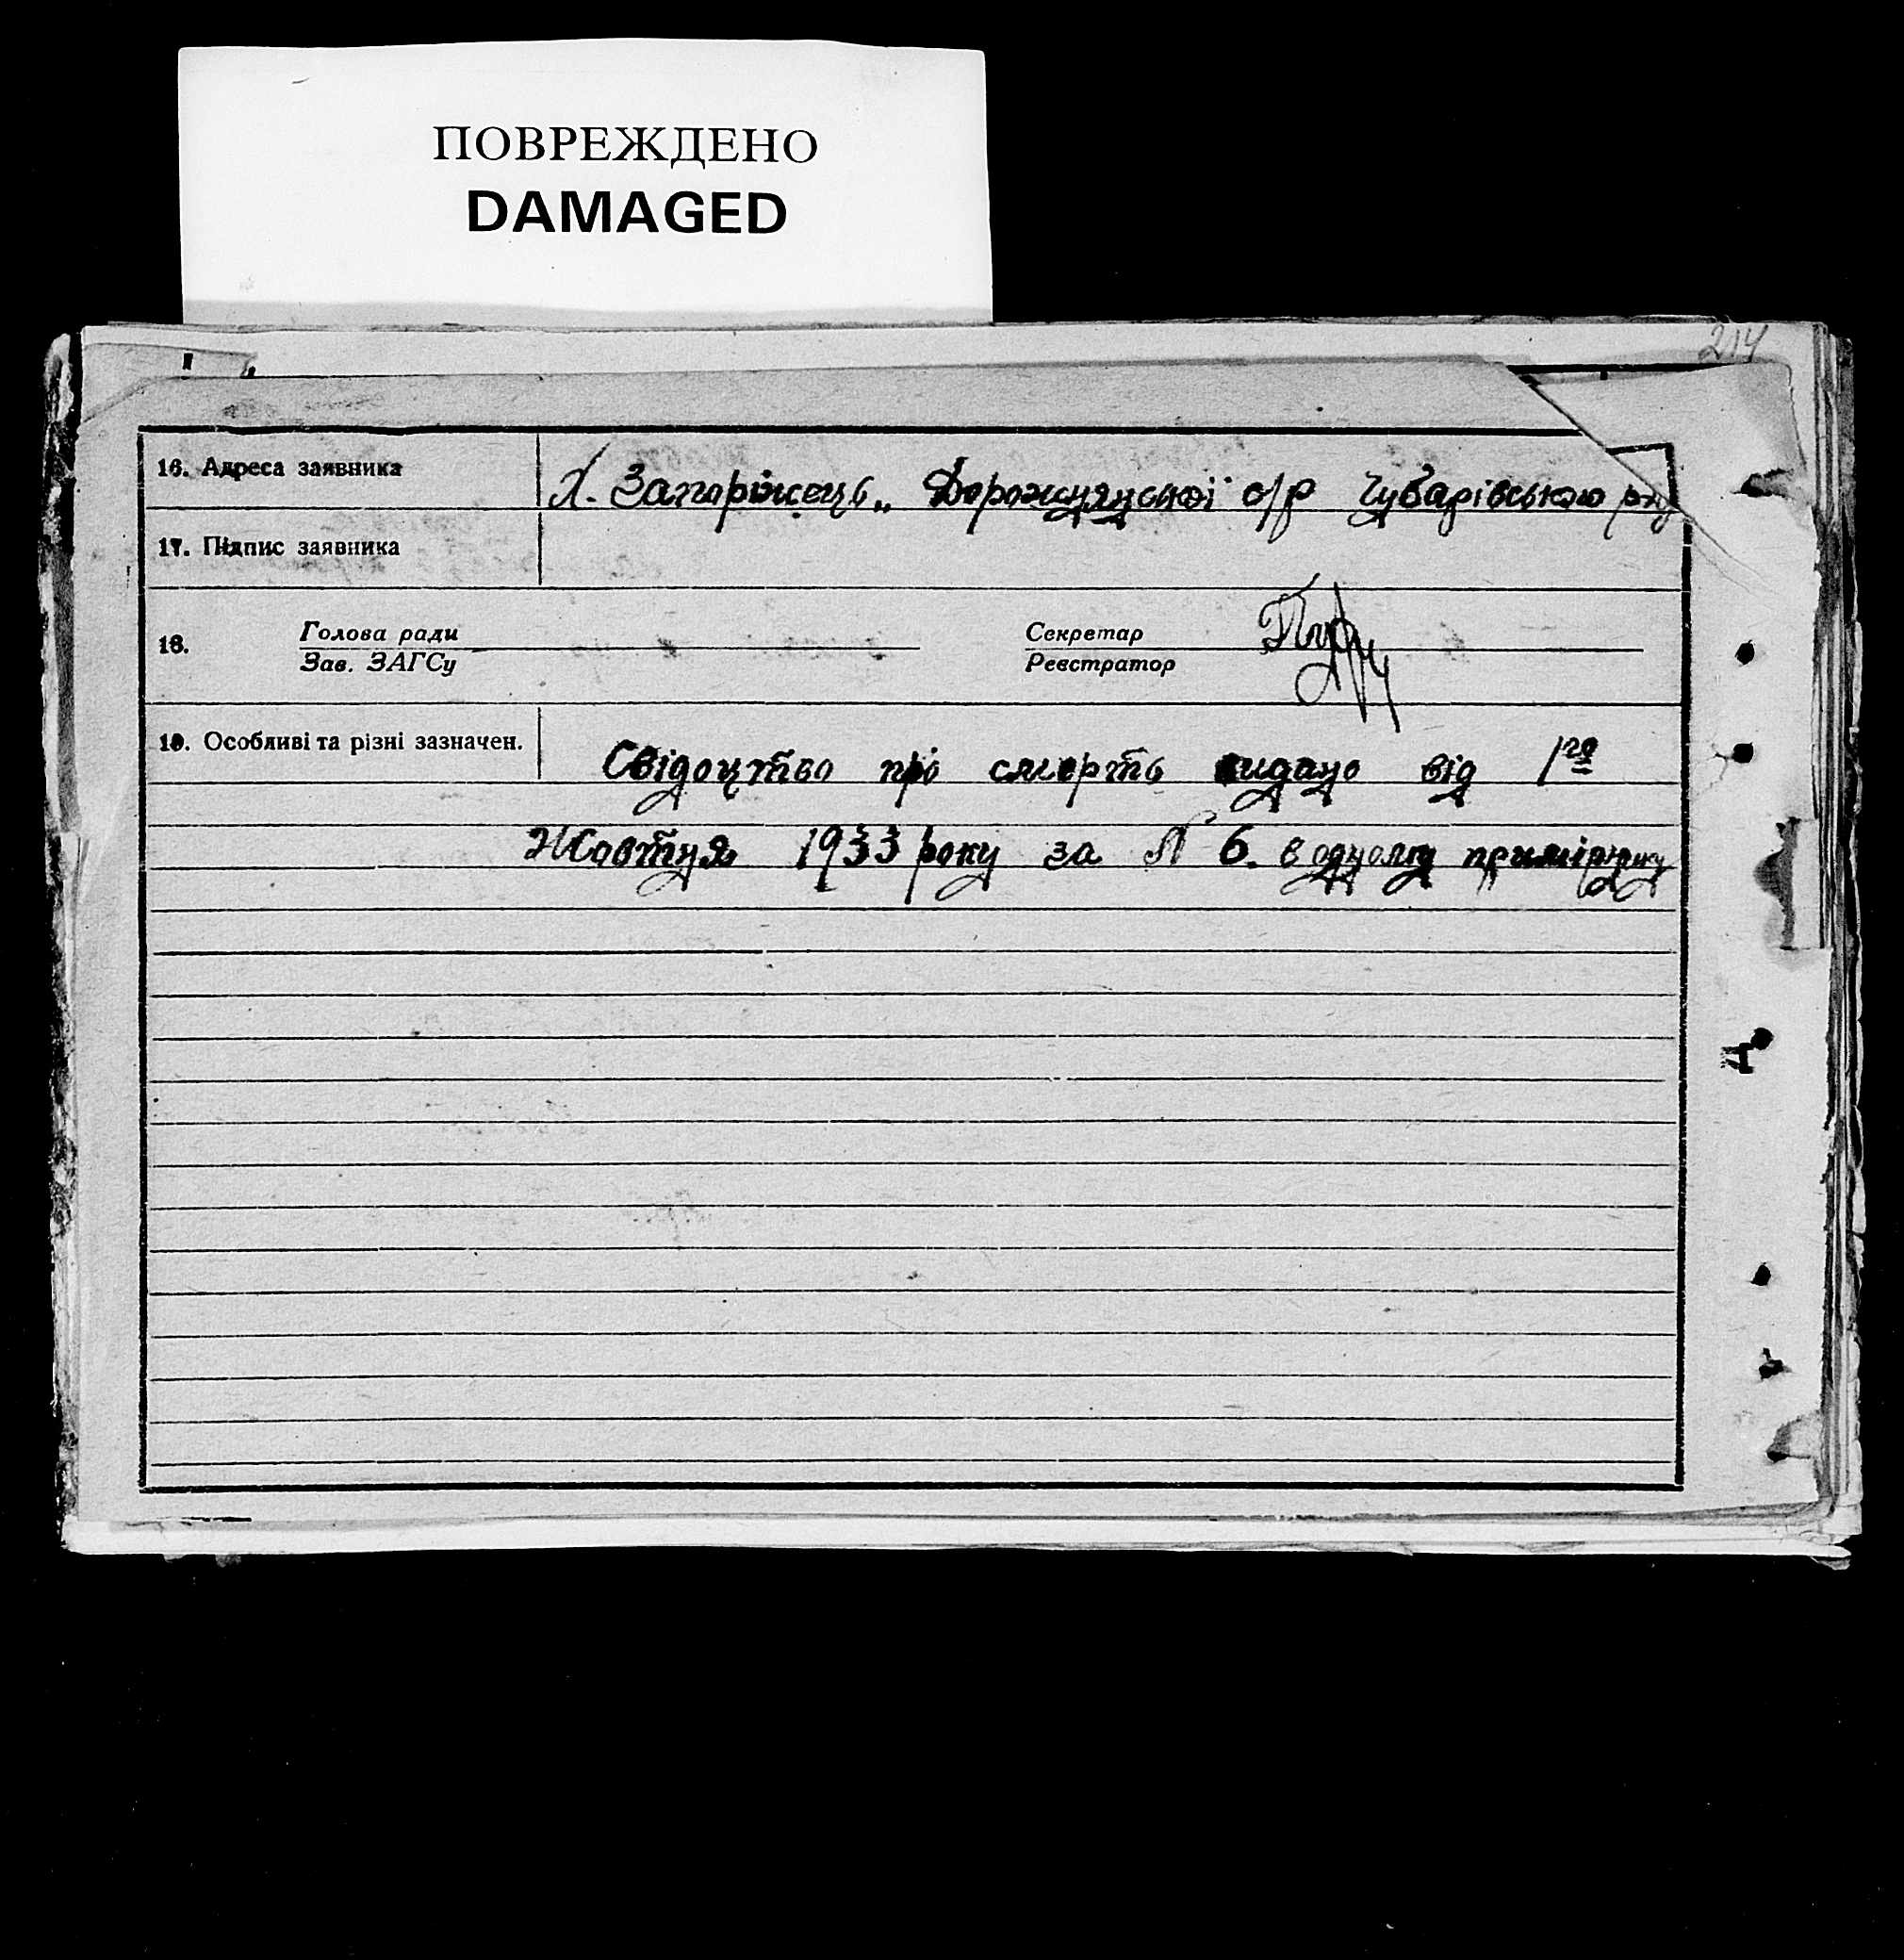 ПОВРЕЖДЕНО
DAMAGED
214
16. Адреса заявника
Х. Запоріжець„ Дорожнянської с/р Чубарівського р-ну
17. Підпис заявника
18. Голова ради Секретар
Зав. ЗАГСу Реєстратор
19. Особливі та різні зазначен.
Свідоцтво про смерть видано від 1го
Жовтня 1933 року за № 6. в одному примірнику